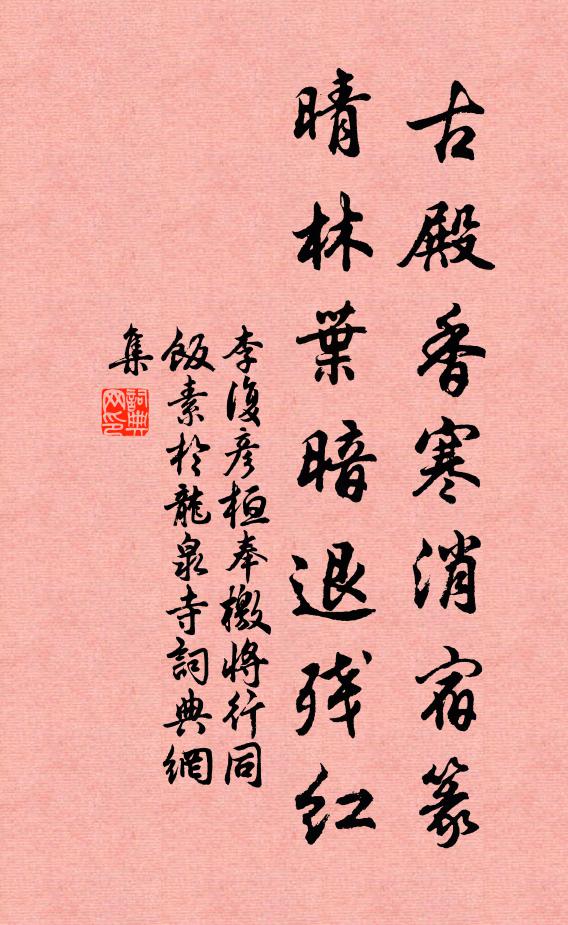 古殿香寒消宿篆
晴林葉暗退残红
李復彦桓奉檄將行同
飯素於龍泉寺詞典網
集
詞典
网印